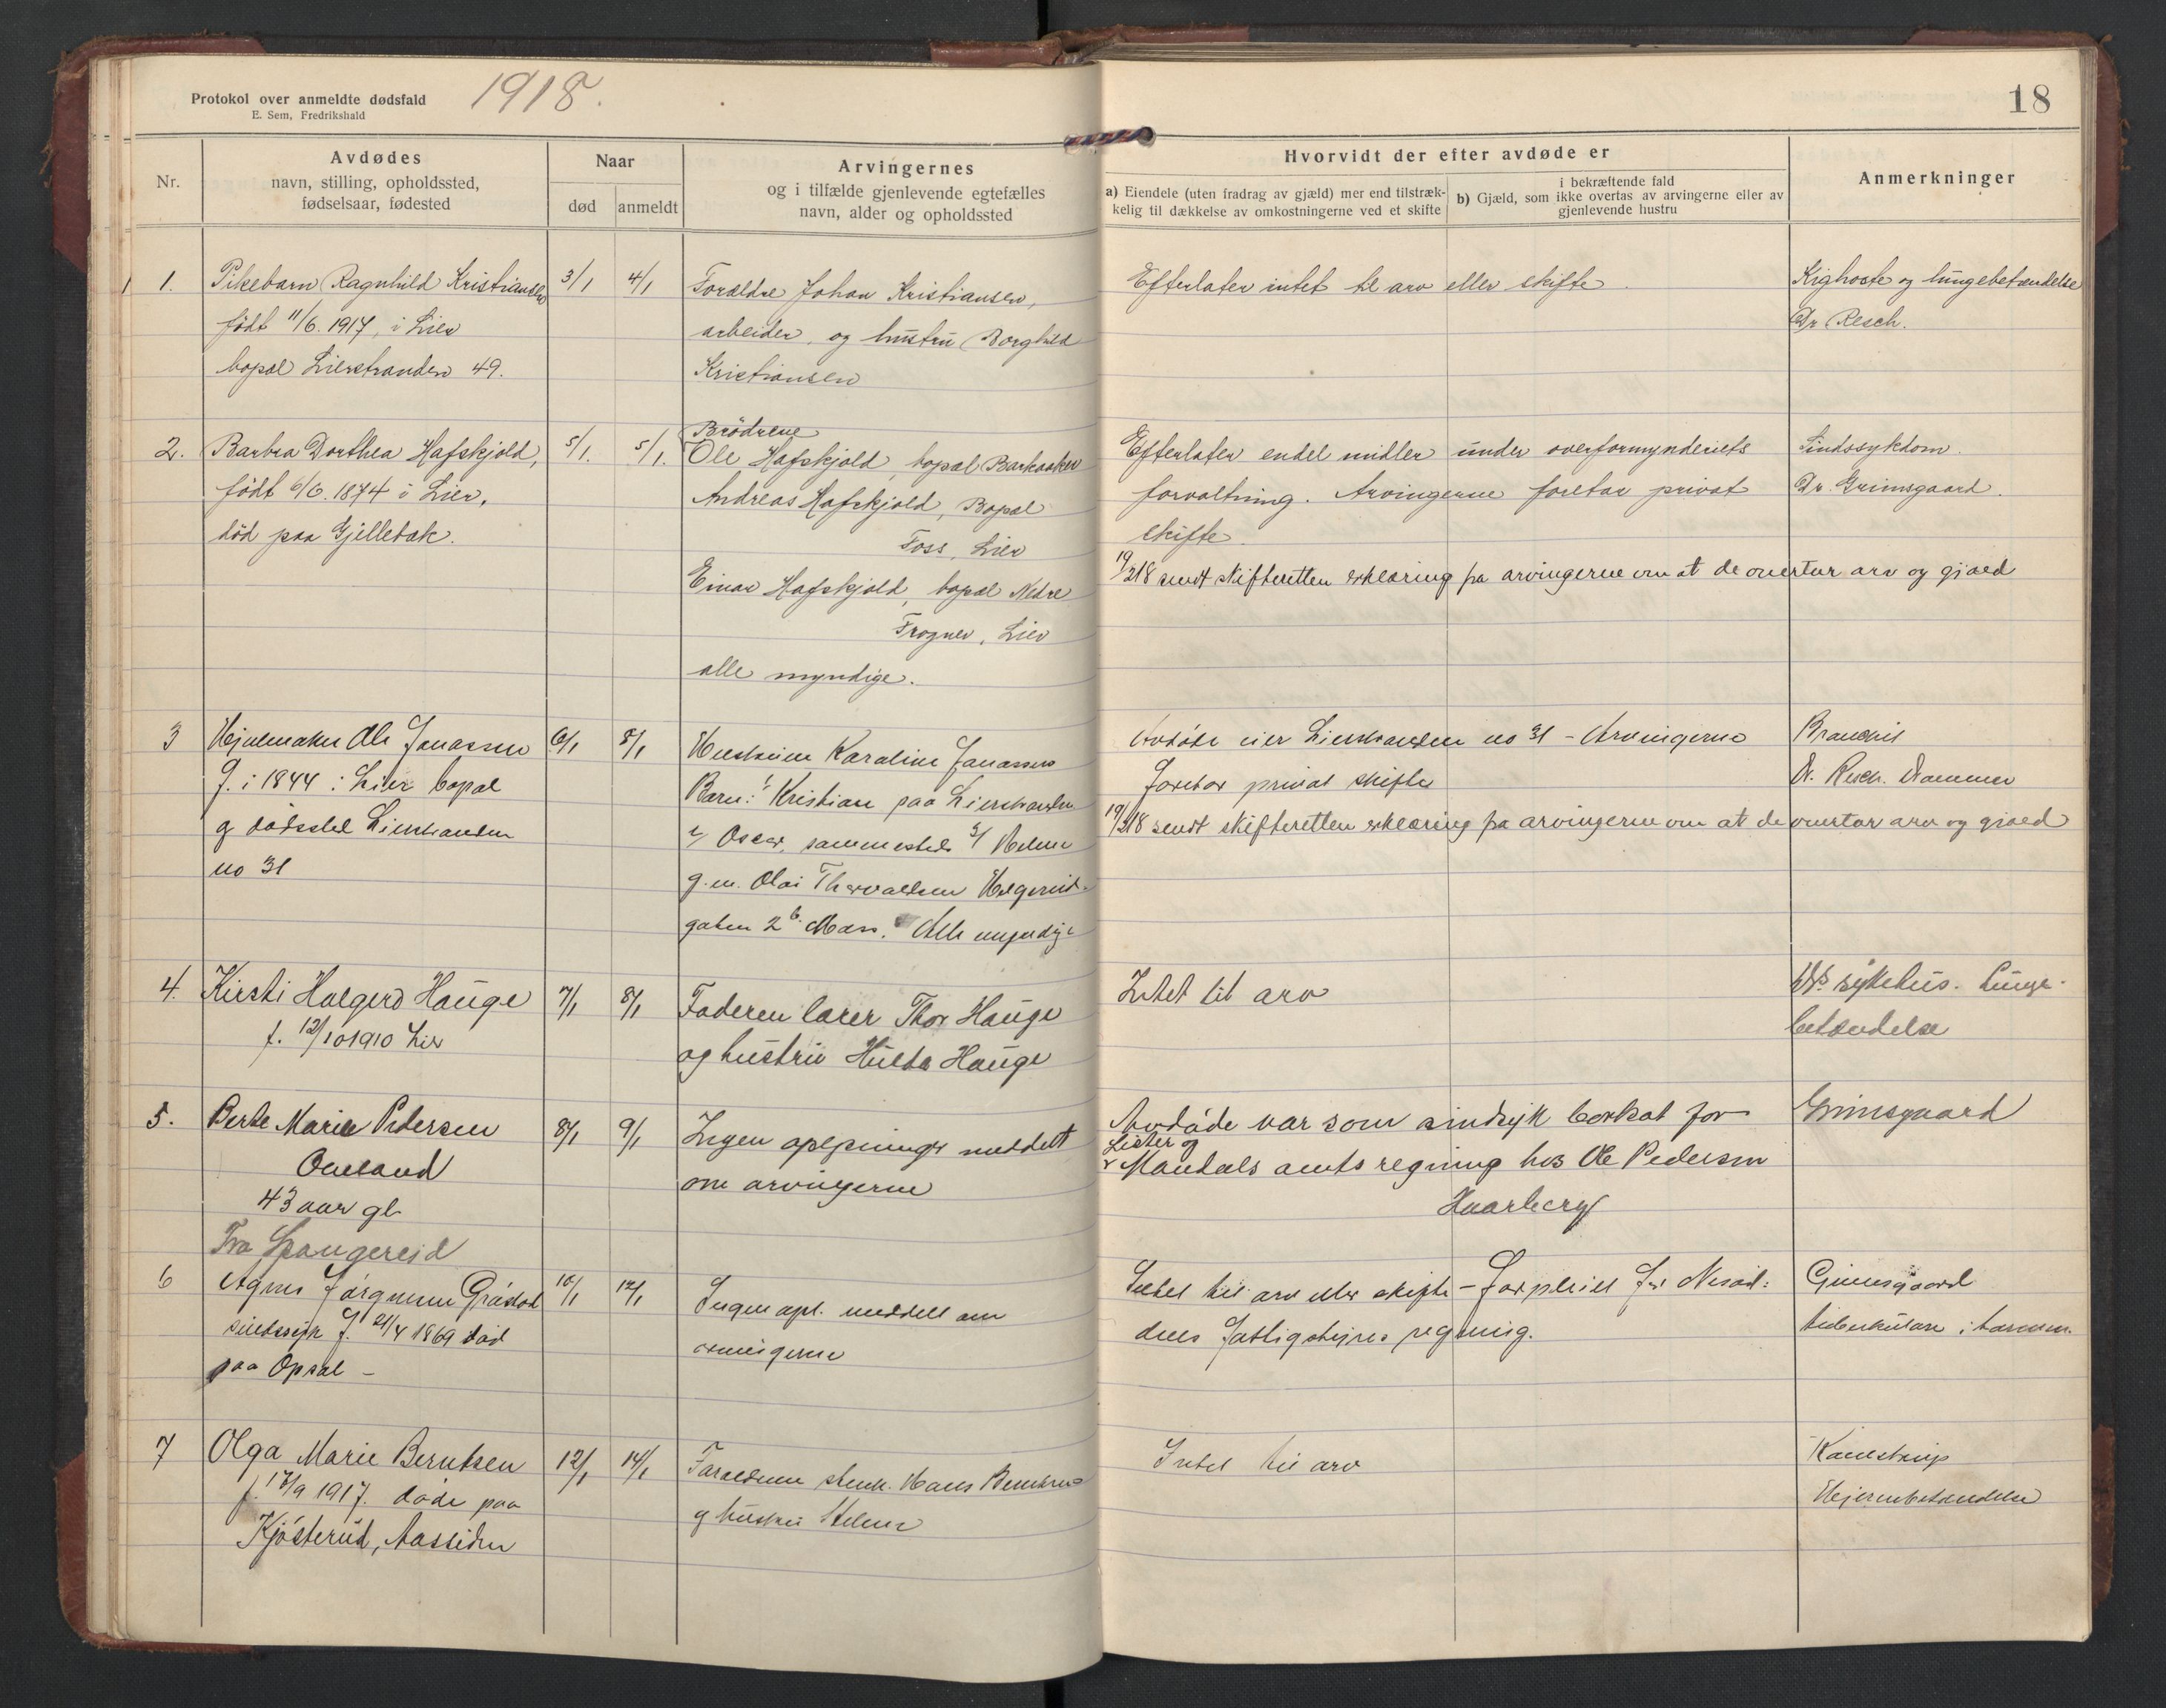 Protokol over anmeldte dødsfald
E. Sem, Fredrikshald
1918.
18
Nr.
Avdødes
navn, stilling, opholdssted,
fødselsaar, fødested
Naar
død
anmeldt
Arvingernes
og i tilfælde gjenlevende egtefælles
navn, alder og opholdssted
Hvorvidt der efter avdøde er
a) Eiendele (uten fradrag av gjæld) mer end tilstræk-
kelig til dækkelse av omkostningerne ved et skifte
i bekræftende fald
b) Gjæld, som ikke overtas av arvingerne eller av
gjenlevende hustru
Anmerkninger
1.
Pikebarn Ragnhild Kristiansen
født 11/6. 1917, i Lier
bopæl Lierstranden 49.
3/1
4/1
Forældre Johan Kristiansen,
arbeider, og hustru Borghild
Kristiansen
Efterlater intet til arv eller skifte.
Kighoste og lungebetændelse
Dr Resch.
2.
Barbra Dorthea Hafskjold,
født 6/6. 1874 i Lier,
død paa Gjellebæk.
5/1.
5/1.
Brødrene
Ole Hafskjold, bopæl Barkaaker
Andreas Hafskjold, Bopæl
Foss, Lier
Einar Hafskjold, bopæl Nedre
Frogner, Lier
alle myndige.
Efterlater endel midler under overformynderiets
forvaltning. Arvingerne foretar privat
skifte.
19/2 18 sendt skifteretten erklæring fra arvingerne om at de overtar arv og gjæld
Sindssykdom.
Dr. Grimsgaard.
3
Hjulmaker Ole Jonassen
f. i 1844 i Lier bopæl
og dødssted Lierstranden
no 31
6/1
8/1
Hustruen Karoline Jonassen
Barn: 1/ Kristian paa Lierstranden
2/ Oscar, sammesteds 3/ Helene
g.m. Olai Thorvaldsen
gaten 2 b. Alle myndige
Avdøde eier Lierstranden no 31 - Arvingerne
foretar privat skifte
19/2 18 sendt skifteretten erklæring fra arvingerne om at de overtar arv og gjæld
Dr. Resch. Drammen
4.
Kirsti Halgerd Hauge
f. 12/10 1910 Lier
7/1
8/1
Faderen lærer Thor Hauge
og hustru Hulda Hauge
Intet til arv
sykehus. Lunge-
betændelse
5.
Berte Marie Pedersen
43 aar gl.
Fra Spangereid
8/1
9/1
Ingen oplysninger meddelt
om arvingerne
Avdøde var som sindsyk bortsat for
Lister og
Mandals amts regning hos Ole Pedersen
Haarberg
Grimsgaard
6
Agnes Jørgensen
sindssyk f. 21/4 1869 død
paa Opsal -
10/1
12/1
Ingen opl. meddelt om
arvingerne
Intet til arv eller skifte - Forpleiet for Nesod-
dens fattigstyres regning.
Grimsgaard
tuberkulose i tarmen.
7
Olga Marie Berntsen
f. 17/9 1917. døde paa
Kjøsterud, Aassiden
12/1
14/1
Forældrene Hans Berntsen
og hustru Helene
Intet til arv
Hjernebetændelse